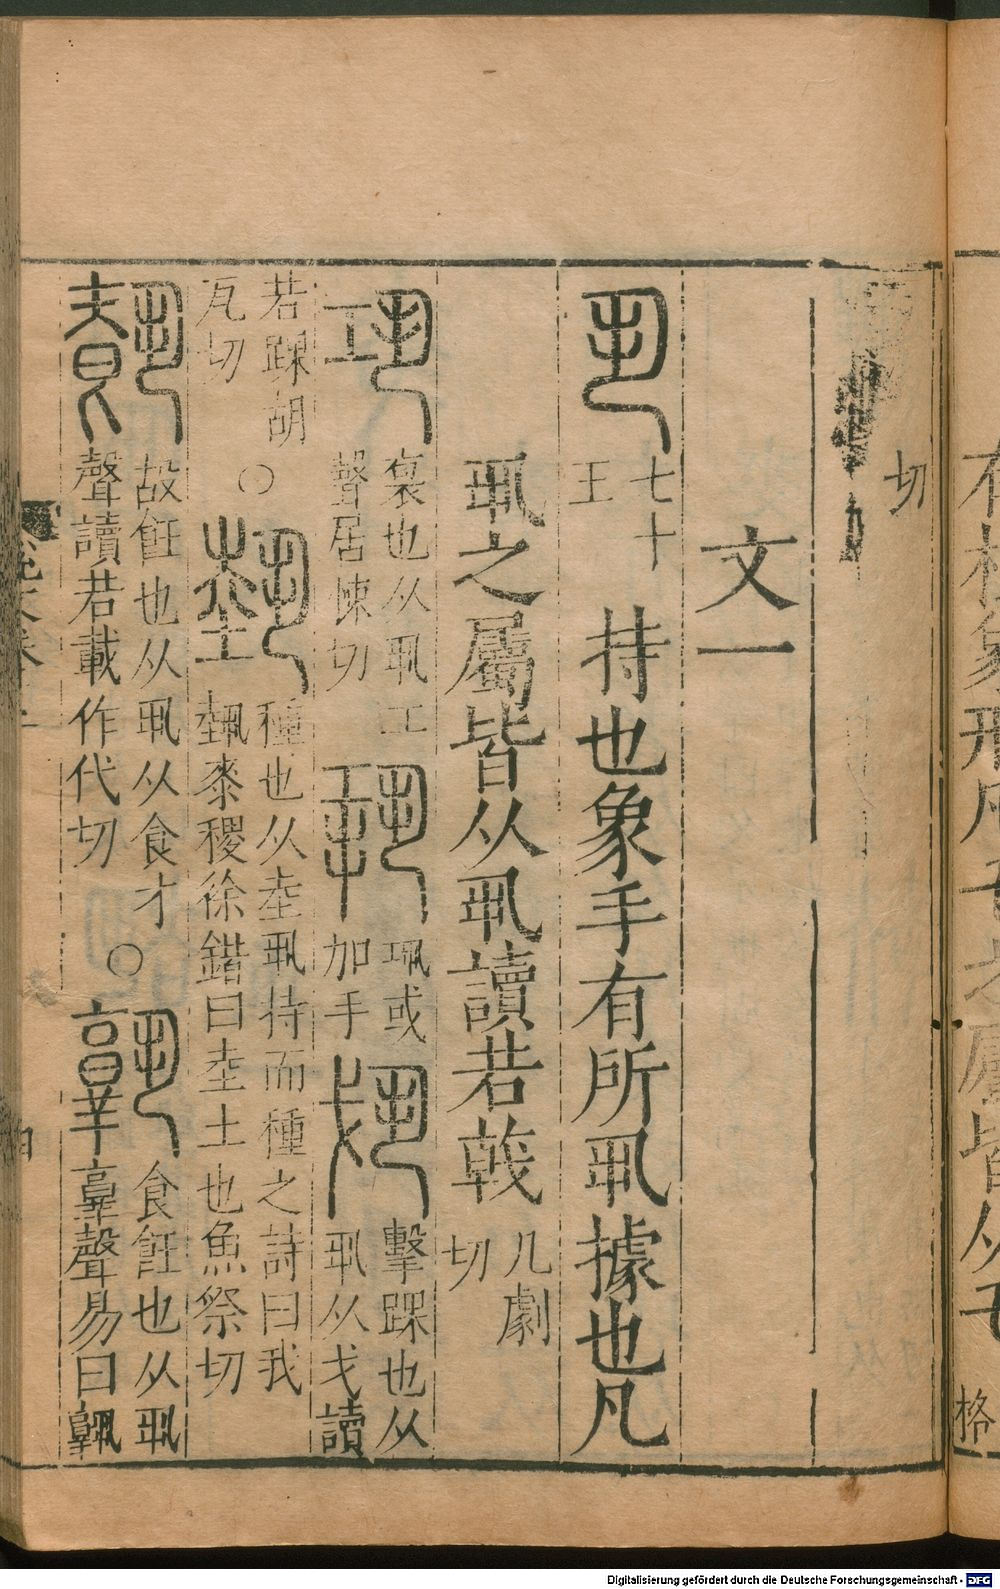 切
文一
七十
王
持也象手有所丮據也凡
丮之屬皆从丮讀若㦸
几劇
切
褱也从丮工
聲居悚切
𢀜或
加手
擊踝也从
丮从戈讀
若踝胡
瓦切
○
種也从坴丮持而種之詩曰我
埶黍稷徐鍇曰坴土也魚祭切
設飪也从丮从食才
聲讀若載作代切
○
食飪也从丮
𦎫聲易曰孰
格
Digitalisierung gefördert durch die Deutsche Forschungsgemeinschaft - DFG